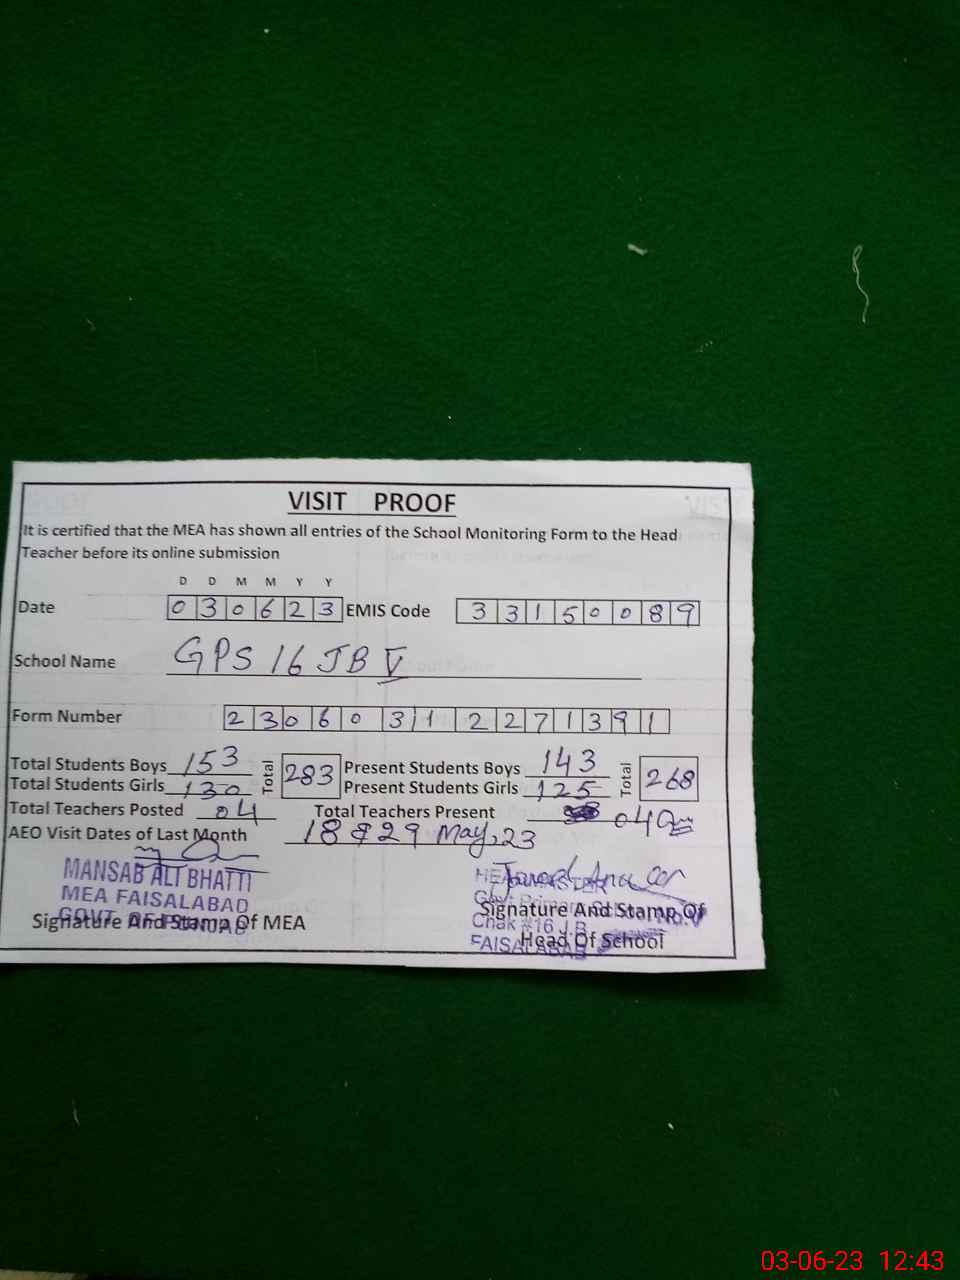 VISIT PROOF
It is certified that the MEA has shown all entries of the School Monitoring Form to the Head
Teacher before its online submission
D D M M Y Y
Date 0 3 0 6 2 3 EMIS Code 3 3 1 5 0 0 8 9
School Name GPS 16 JB V
Form Number 2 3 0 6 0 3 1 2 2 7 1 3 9 1
Total Students Boys 153 Total 283 Present Students Boys 143 Total 268
Total Students Girls 130 Present Students Girls 125
Total Teachers Posted 04 Total Teachers Present 04
AEO Visit Dates of Last Month 18 & 29 May, 23
MANSAB ALI BHATTI
MEA FAISALABAD
GOVT. OF PUNJAB
Signature And Stamp Of MEA
HEADMASTER
Govt Primary School No.V
Chak #16 J.B
FAISALABAD
Signature And Stamp Of
Head Of School
03-06-23 12:43